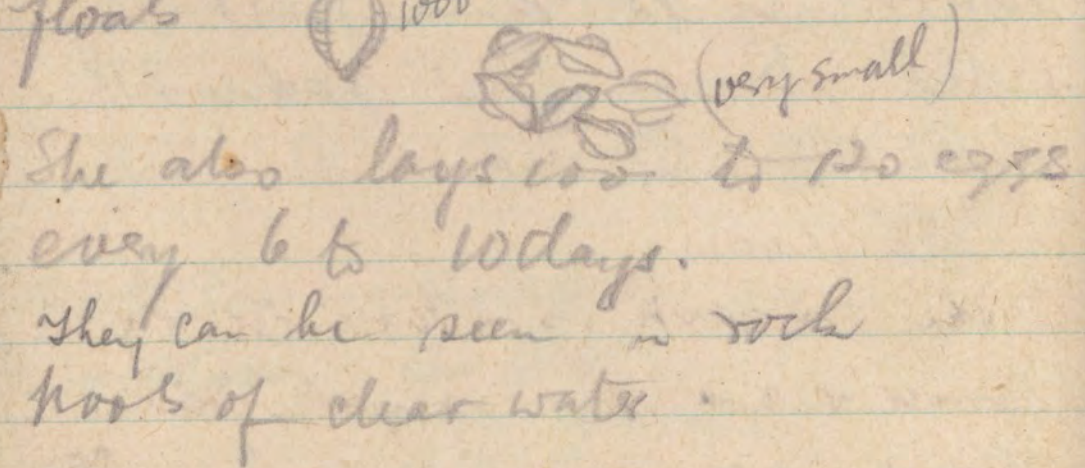 floats 1000
(very small)
She also lays 100 to 120 eggs
every 6 to 10 days.
They can be seen in rock
pools of clear water.